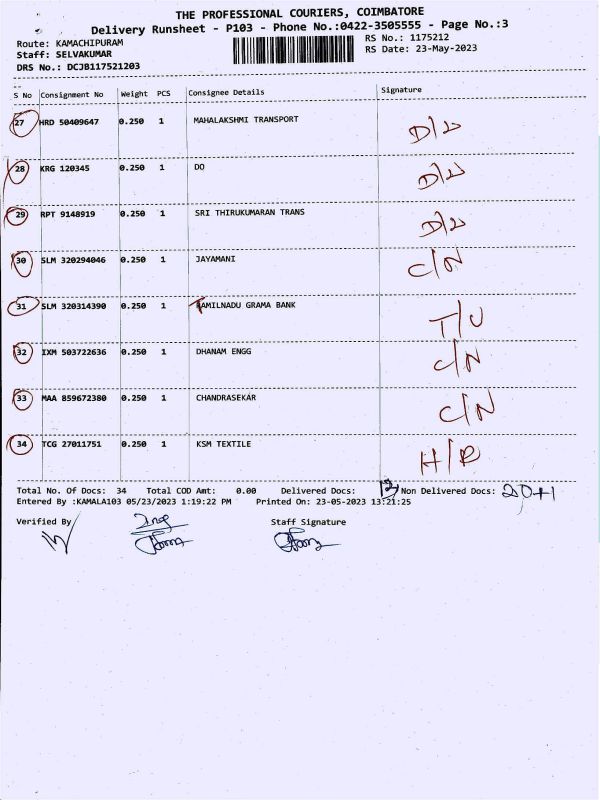 THE PROFESSIONAL COURIERS, COIMBATORE
Delivery Runsheet - P103 - Phone No.:0422-3505555 - Page No.:3
Route: KAMACHIPURAM RS No.: 1175212
Staff: SELVAKUMAR RS Date: 23-May-2023
DRS No.: DCJB117521203
S No Consignment No Weight PCS Consignee Details Signature
27 HRD 50409647 0.250 1 MAHALAKSHMI TRANSPORT
28 KRG 120345 0.250 1 DO
29 RPT 9148919 0.250 1 SRI THIRUKUMARAN TRANS
30 SLM 320294046 0.250 1 JAYAMANI C/N
31 SLM 320314390 0.250 1 TAMILNADU GRAMA BANK T/U
32 IXM 503722636 0.250 1 DHANAM ENGG C/N
33 MAA 859672380 0.250 1 CHANDRASEKAR C/N
34 TCG 27011751 0.250 1 KSM TEXTILE H/R
Total No. Of Docs: 34 Total COD Amt: 0.00 Delivered Docs: 13 Non Delivered Docs: 20+1
Entered By :KAMALA103 05/23/2023 1:19:22 PM Printed On: 23-05-2023 13:21:25
Verified By Staff Signature